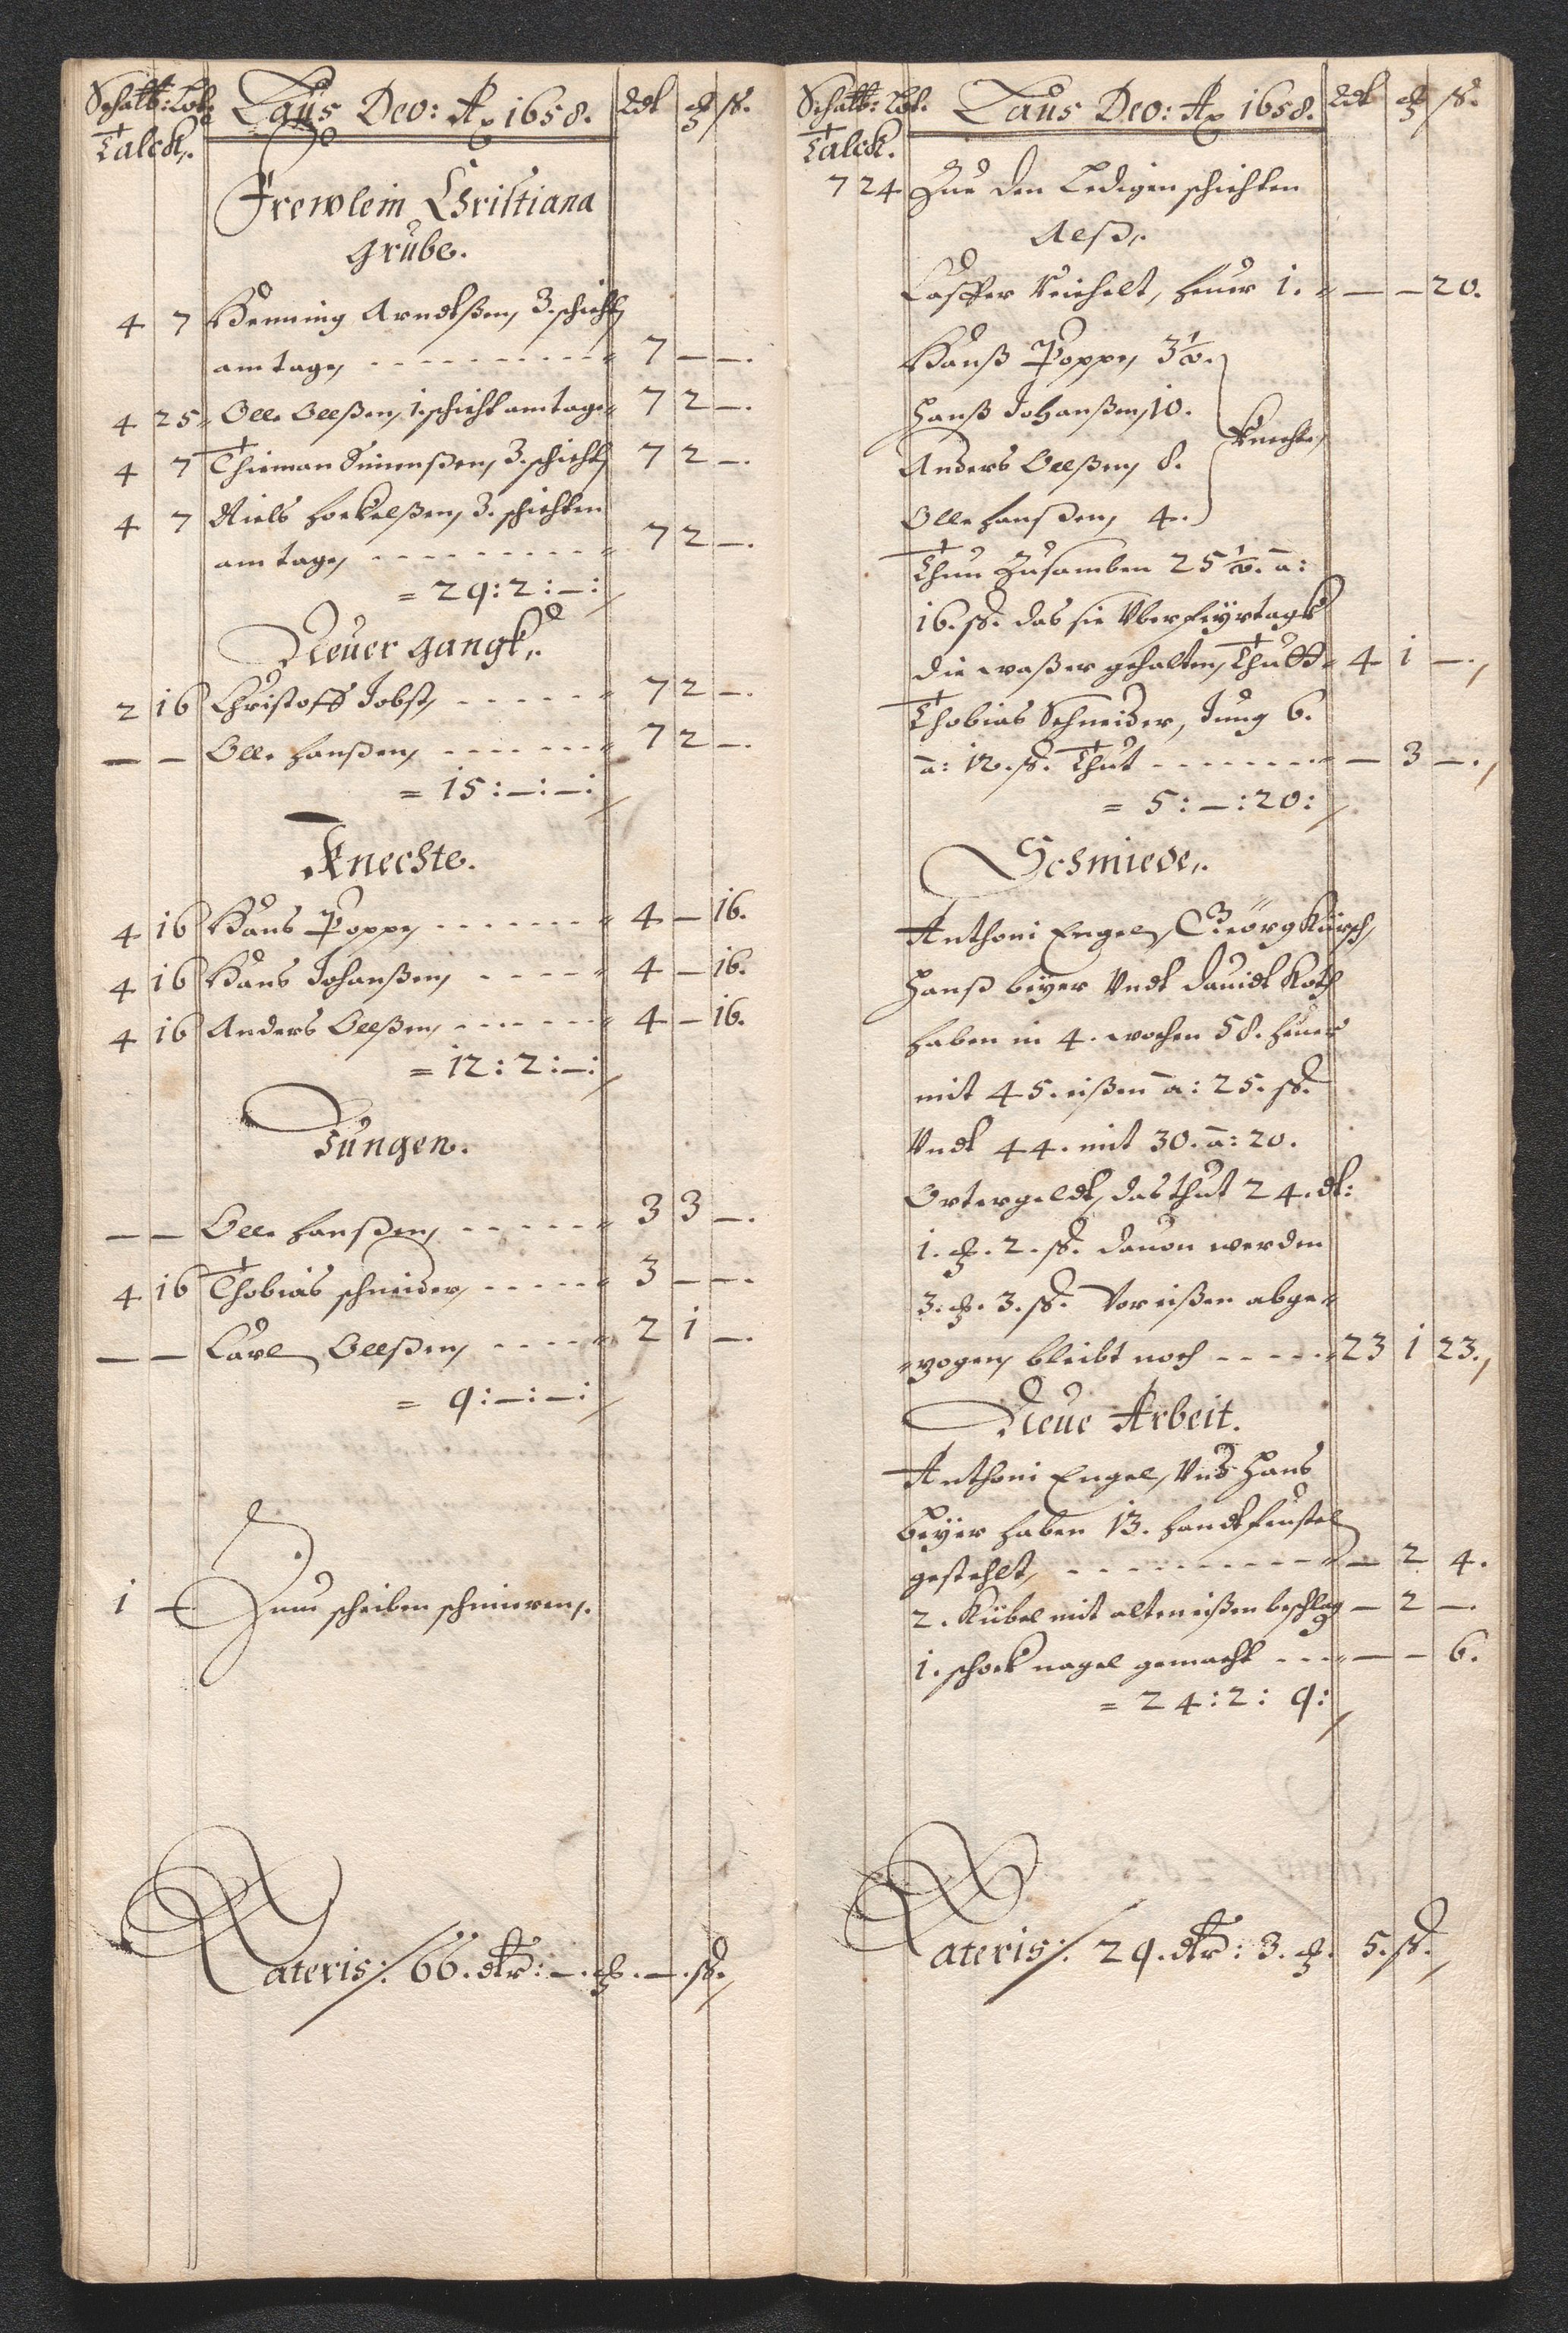 Schalt: Lot. Laus Deo: Ao 1658. Rdt ₰ ß.
Talck.
Frewlein Christiana
grube.
4 7 Henning Arndtßen, 3. schicht
am tage, - - - 7 — —.
4 25 Olle Olleßen, 1. schicht am tage 7 2 —.
4 7 Thieman Simenßen, 3. schicht 7 2 —.
4 7 Niels 3. schichten
am tage, - - - 7 2 —.
= 29 : 2 : — :
Neuer gangk.
2 16 Christoff Jobst, - - - 7 2 —.
— — Olle Hanßen, - - - 7 2 —.
= 15 : — : — :
Knechte.
4 16 Hans Poppe, - - - 4 — 16.
4 16 Hans Johanßen, - - - 4 — 16.
4 16 Anders Olleßen, - - - 4 — 16.
= 12 : 2 : — :
Jungen.
— — Olle Hanßen, - - - 3 3 —.
4 16 Thobias schneider, - - - 3 — —.
— — Carl Olleßen, - - - 2 1 —.
= 9 : — : — :
1 — Zum scheiben schmieren.
Lateris: 66. dlr: —. —. ß.
Schalt: Lot. Laus Deo: Ao 1658. Rdt ₰ ß.
Talck.
7 24 Zue den Ledigen schichten
Alß.
Casper Reichelt, heuer 1. — — 20.
Hanß Poppe, 3 1/2.
Hanß Johanßen, 10.
Knechte,
Anders Olleßen, 8.
Olle Hanßen, 4.
Thun Zusamben 25 1/2. a:
16. ß. das sie Uber feyrtage
die waßer gehalten, Thutt 4 1 —.
Thobias Schneider, Jung 6.
a: 12. ß. Thut - - - — 3 —.
= 5 : — : 20 :
Schmiede.
Anthoni Engel, Georg Kärsch,
Hanß beyer Undt Dauidt Koch
haben in 4. wochen 58. heuer
mit 45. eißen a: 25. ß.
Undt 44. mit 30. a: 20.
Ortergeldt, das thut 24. dt:
1. 2. ß. dauon werden
3. 3. ß. Vor eißen abge-
zogen, bleibt noch - - - 23 1 23.
Neue Arbeit.
Anthoni Engel, Und Hans
beyer haben 13. handtfeustel
gestehlt, - - - — 2 4.
2. Kübel mit alten eißen beschlag — 2 —.
1. schock nagel gemacht - - - — — 6.
= 24 : 2 : 9 :
Lateris: 29. dlr: 3. 5. ß.